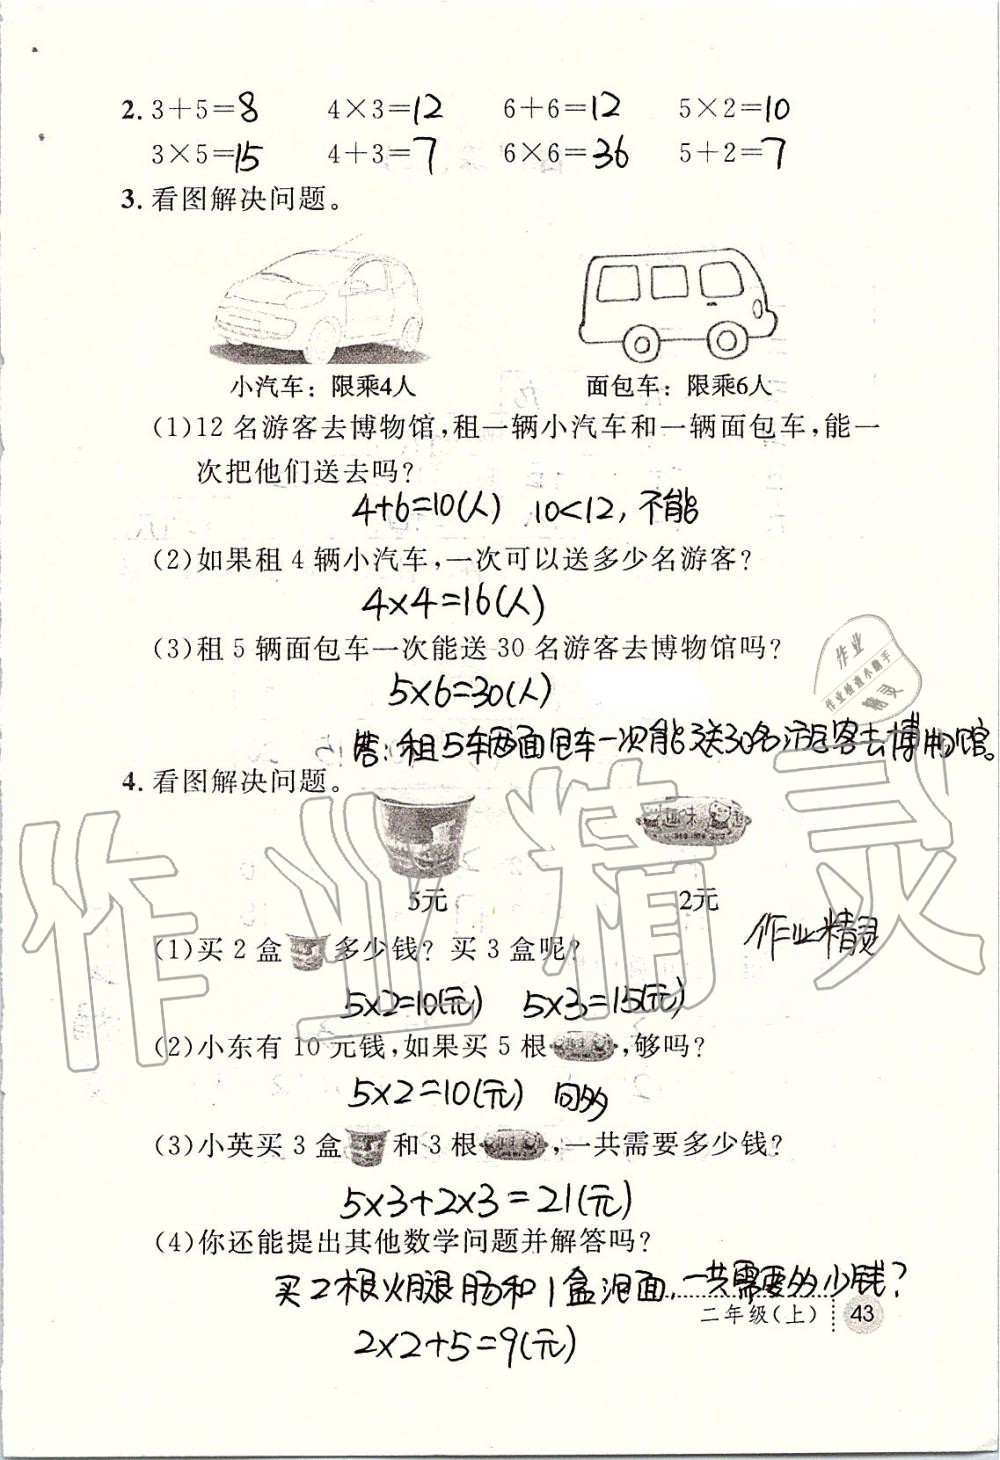 2. 3+5=8 4×3=12 6+6=12 5×2=10
3×5=15 4+3=7 6×6=36 5+2=7
3. 看图解决问题。
小汽车：限乘4人 面包车：限乘6人
(1)12 名游客去博物馆,租一辆小汽车和一辆面包车,能一
次把他们送去吗?
4+6=10(人) 10<12, 不能
(2)如果租 4 辆小汽车,一次可以送多少名游客?
4×4=16(人)
(3)租 5 辆面包车一次能送 30 名游客去博物馆吗?
5×6=30(人)
作业
作业检查小助手
精灵
答:租5车两面包车一次能送30名游客去博物馆。
4. 看图解决问题。
趣味
5元 2元
作业精灵
作业精灵
(1)买 2 盒 多少钱? 买 3 盒呢?
5×2=10(元) 5×3=15(元)
(2)小东有 10 元钱,如果买 5 根 ,够吗?
5×2=10(元)
(3)小英买 3 盒 和 3 根 ,一共需要多少钱?
5×3+2×3=21(元)
(4)你还能提出其他数学问题并解答吗?
买2根火腿肠和1盒泡面,一共需要多少钱?
二年级(上) 43
2×2+5=9(元)